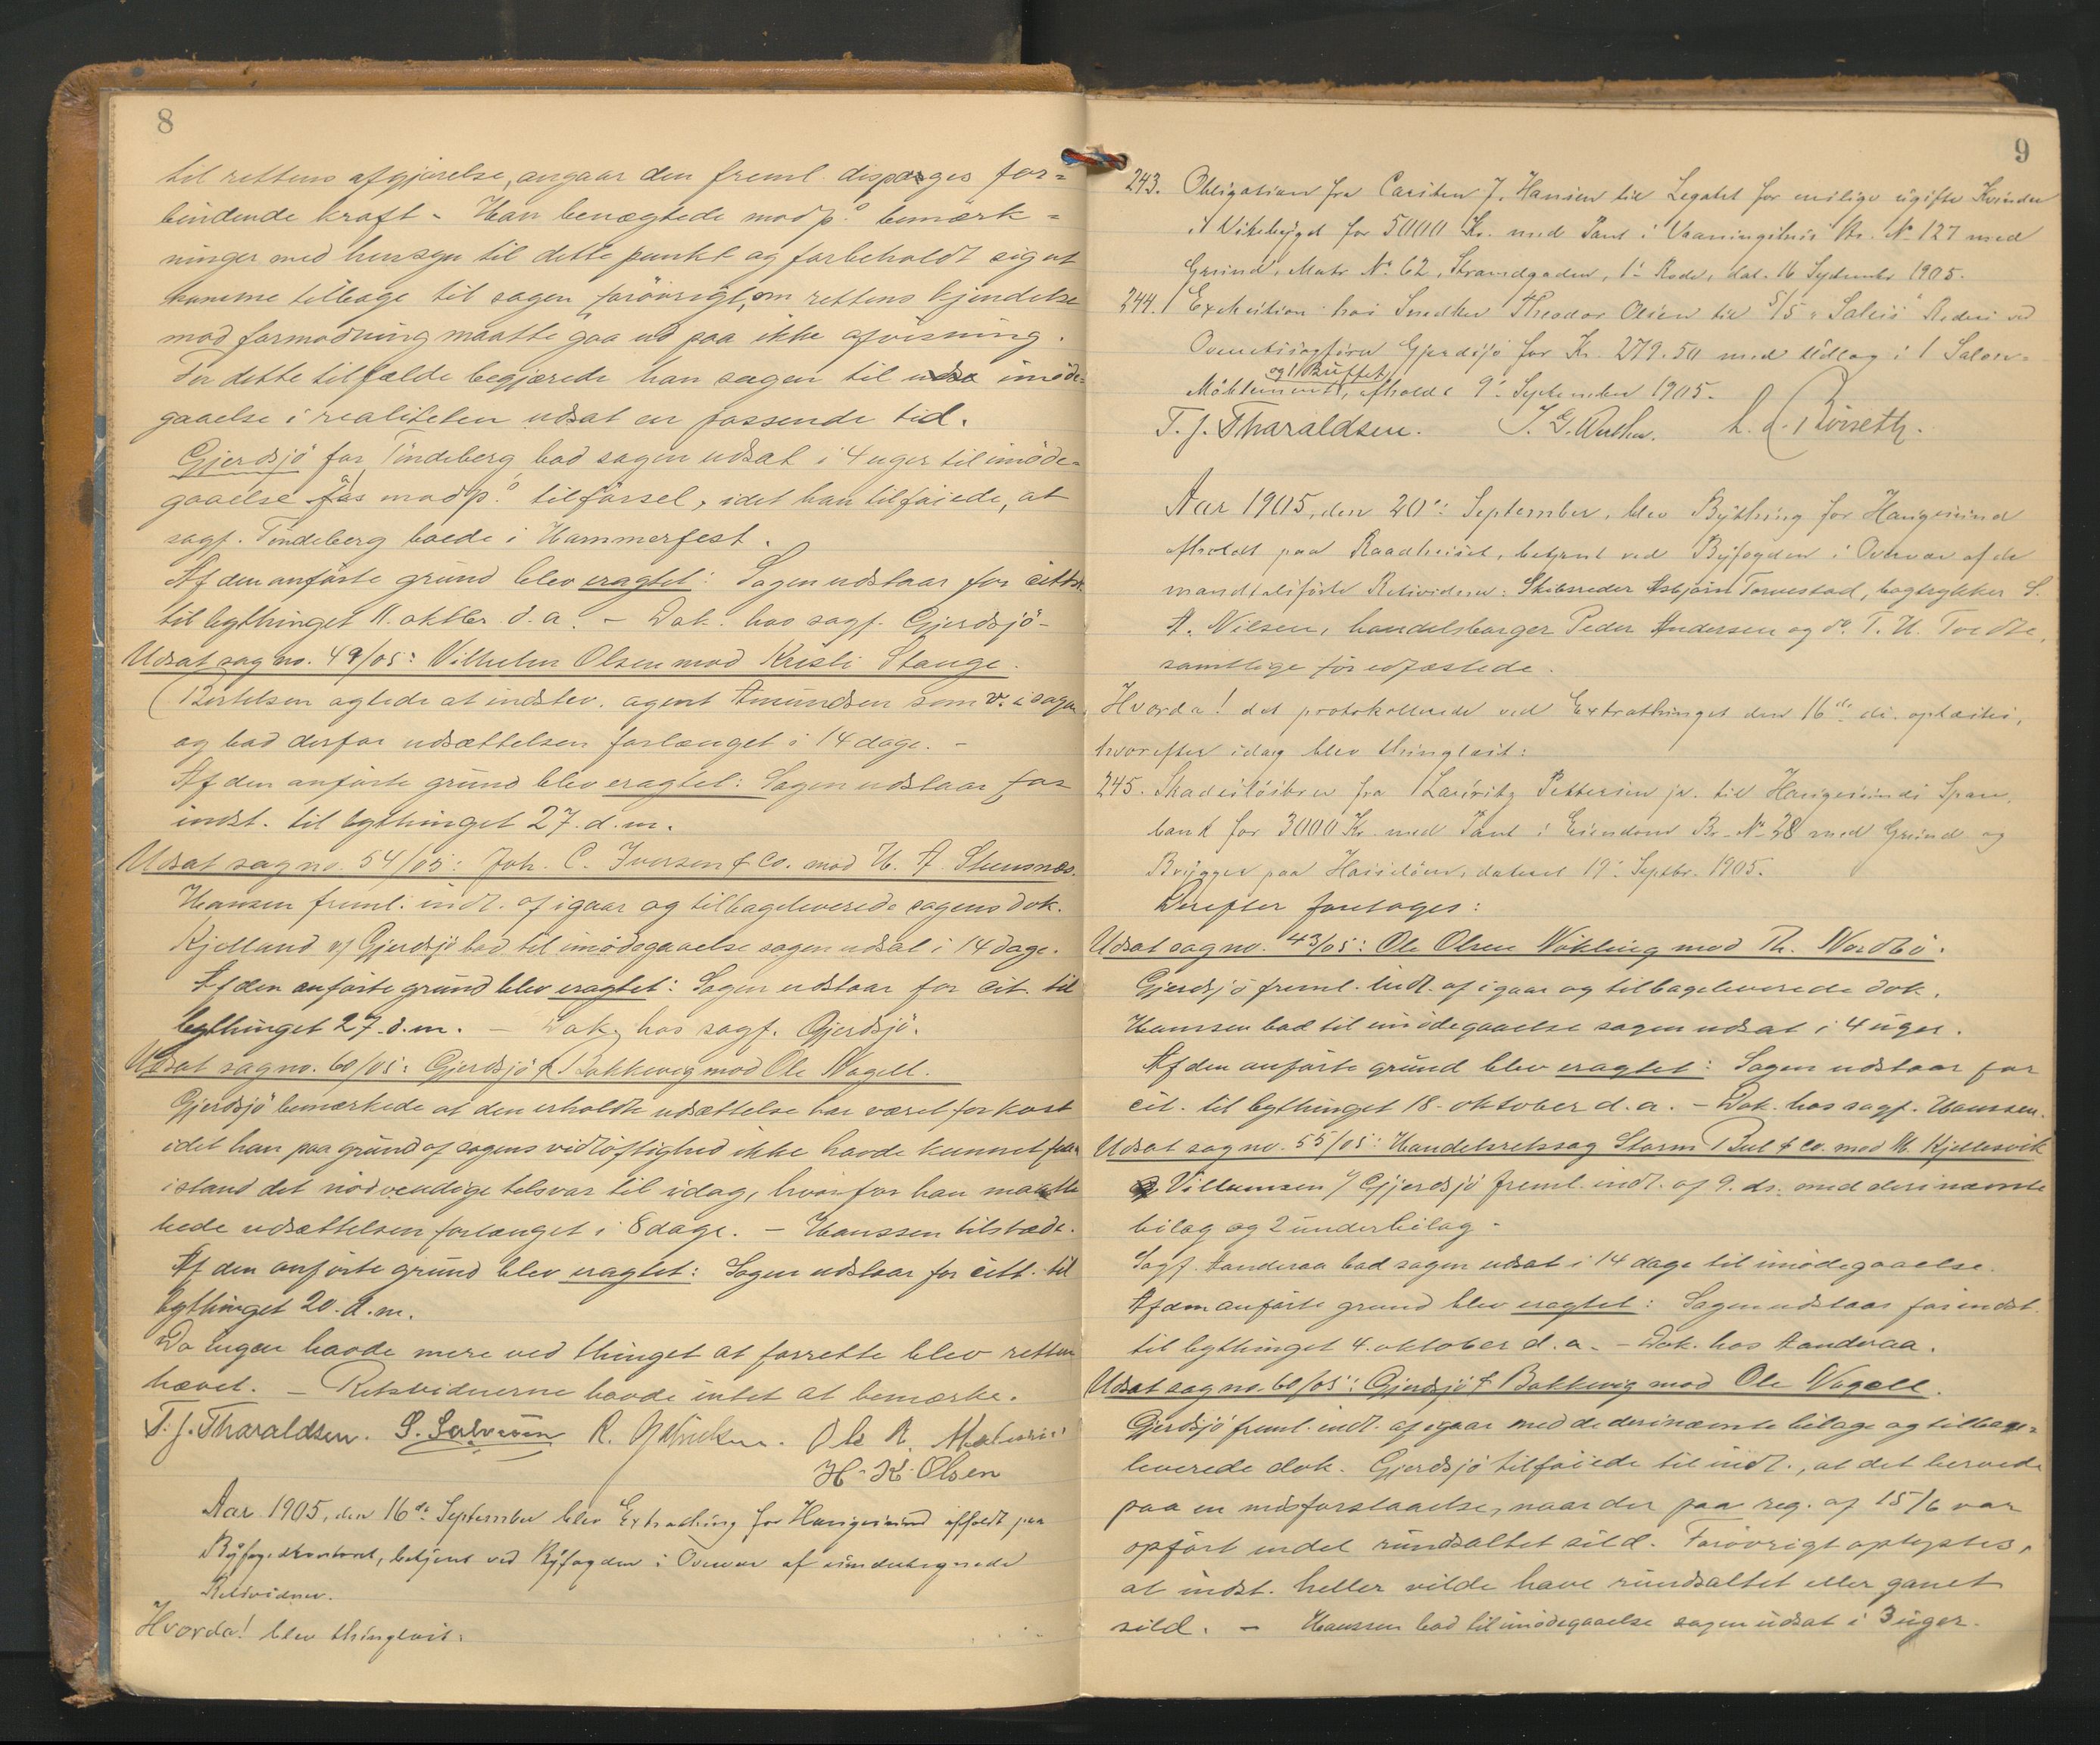 8
til rettens afgjørelse, angaar den freml. dispasges for=
bindende kraft. Han benægtede modp.s bemærk=
ninger med hensyn til dette punkt og forbeholdt sig at
komme tilbage til sagen forövrigt, om rettens kjendelse
mod formodning maatte gaa ud paa ikke afvisning.
For dette tilfælde begjærede han sagen til imöde=
gaaelse i realiteten udsat en passende tid.
Gjerdsjö for Tindeberg bad sagen udsat i 4 uger til imöde=
gaaelse modp.s tilförsel, idet han tilföiede, at
sagf. Tindeberg boede i Hammerfest.
Af den anförte grund blev eragtet: Sagen udstaar for citts.
til bythinget 11. oktbr. d. a. - Dok. hos sagf. Gjerdsjö.
Udsat sag no. 49/05: Vilhelm Olsen mod Kristi Stange.
Bertelsen agtede at indstev. agent Amundsen som v. i sagen
og bad derfor udsættelsen forlænget i 14 dage. -
Af den anförte grund blev eragtet: Sagen udstaar for
indst. til bythinget 27. d. m.
Udsat sag no. 54/05: Joh. C. Iversen & Co. mod H. A. Stensnes.
Hansen freml. indl. af igaar og tilbageleverede sagens dok.
Kjelland v/ Gjerdsjö bad til imödegaaelse sagen udsat i 14 dage.
Af den anförte grund blev eragtet: Sagen udstaar for cit. til
bythinget 27. d. m. - Dok. hos sagf. Gjerdsjö.
Udsat sag no. 60/05: Gjerdsjö & Bakkevig mod Ole Vagell.
Gjerdsjö bemærkede at den erholdte udsættelse har været for kort
idet han paa grund af sagens vidlöftighed ikke havde kunnet faa
istand det nödvendige tilsvar til idag, hvorfor han maatte
bede udsættelsen forlænget i 8 dage. - Hanssen tilstede.
Af den anförte grund blev eragtet: Sagen udstaar for citt. til
bythinget 20. d. m.
Da ingen havde mere ved thinget at forrette blev retten
hævet. - Retsvidnerne havde intet at bemærke.
T. J. Tharaldsen. S. Salvesen R. Ole R.
H. K. Olsen
Aar 1905, den 16de September blev Extrathing for Haugesund afholdt paa
Byfogedkontoret, betjent ved Byfogden i Overvær af undertegnede
Retsvidner.
Hvorda! blev thinglæst:
9
243. Obligation fra Carsten J. Hansen til Legatet for ugifte Kvinder
i Vikebygd for 5000 Kr. med Pant i Vaaningshus Br. No 127 med
Grund, Matr. No 62, Strandgaden, 1ste Rode, dat. 16 September 1905.
244. Exekution hos Snedker Theodor Olsen til S/S "Saleis" Rederi ved
Overretssagförer Gjerdsjö for Kr. 279.50 med Udlæg i 1 Salon-
og 1 Buffet
Möblement, afholdt 9de September 1905.
T. J. Tharaldsen.
Aar 1905, den 20de September, blev Bything for Haugesund
afholdt paa Raadhuset, betjent ved Byfogden i Overvær af de
mandtalsförte Retsvidner: Skibsreder Asbjörn Torvestad, bogtrykker S.
A. Nilsen, handelsborger Peder Andersen og do. T. H. Tvedte,
samtlige för edfæstede.
Hvorda! det protokollerede ved Extrathinget den 16de ds. oplæstes,
hvorefter idag blev thinglæst:
245. Skadeslösbrev fra Lauritz Pettersen jr. til Haugesunds Spare-
bank for 3000 Kr. med Pant i Eiendom Br. No 38 med Grund og
Brygger paa Hasselöen, dateret 19de Septbr. 1905.
Derefter foretoges:
Udsat sag no. 43/05: Ole Olsen Vikling mod Th. Nordbö.
Gjerdsjö freml. indl. af igaar og tilbageleverede dok.
Hanssen bad til imödegaaelse sagen udsat i 4 uger.
Af den anförte grund blev eragtet: Sagen udstaar for
cit. til bythinget 18. oktober d. a. - Dok. hos sagf. Hanssen.
Udsat sag no. 55/05: Handelsretssag Storm Bul & Co. mod M. Kjellesvik
Villumsen v/ Gjerdsjö freml. indl. af 9. ds. med deri nævnte
bilag og 2 underbilag.
Sagf. Aanderaa bad sagen udsat i 14 dage til imödegaaelse.
Af den anförte grund blev eragtet: Sagen udstaar for indst.
til bythinget 4. oktober d. a. - Dok. hos Aanderaa.
Udsat sag no. 60/05: Gjerdsjö & Bakkevig mod Ole Vagell.
Gjerdsjö freml. indl. af igaar med de deri nævnte bilage og tilbage=
leverede dok. Gjerdsjö tilföiede til indl., at det beroede
paa en misforstaaelse, naar der paa reg. af 15/6 var
opfört endel rundsaltet sild. Forövrigt oplystes,
at indst. heller vilde have rundsaltet eller ganet
sild. - Hanssen bad til imödegaaelse sagen udsat i 3 uger.